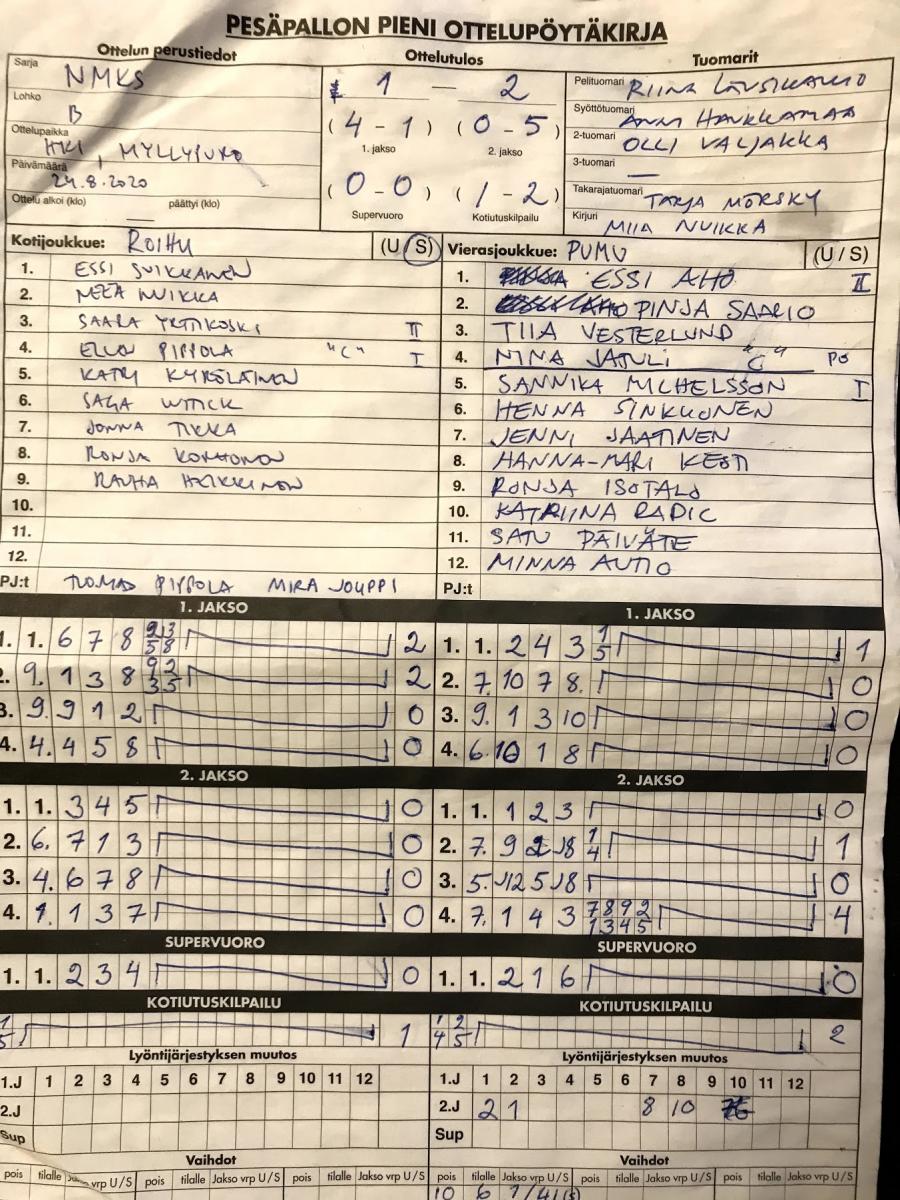 PESÄPALLON PIENI OTTELUPÖYTÄKIRJA
Ottelun perustiedot Ottelutulos Tuomarit
Sarja NMKS
Lohko B
Ottelupaikka HKI, MYLLYPURO
Päivämäärä 24.8.2020
Ottelu alkoi (klo) — päättyi (klo)
1 — 2
(4 - 1) (0 - 5)
1. jakso 2. jakso
(0 - 0) (1 - 2)
Supervuoro Kotiutuskilpailu
Pelituomari RIINA
Syöttötuomari ANNI
2-tuomari OLLI VALJAKKA
3-tuomari —
Takarajatuomari TARJA MÖRSKY
Kirjuri MIIA NUIKKA
Kotijoukkue: ROIHU (U/S)
1. ESSI SUIKKANEN
2. NUIKKA
3. SAARA YRTTIKOSKI II
4. PIPPOLA "C" I
5. KATRI KYRÖLÄINEN
6. SAGA
7. JONNA TIKKA
8. RONJA KORHONEN
9. RAUHA HEIKKINEN
10.
11.
12.
PJ:t TUOMAS PIPPOLA MIRA JOUPPI
Vierasjoukkue: PUMU (U/S)
1. ESSI AHO II
2. PINJA SAARIO
3. TIIA VESTERLUND
4. NINA JATULI "C" PO
5. SANNIKA MICHELSSON I
6. HENNA SINKKONEN
7. JENNI JAATINEN
8. HANNA-MARI KESTI
9. RONJA ISOTALO
10. KATRIINA RADIC
11. SATU PÄIVÄTE
12. MINNA AUTIO
PJ:t
1. JAKSO
1. 1. 6 7 8 9 2 3 2
5 8
2. 9. 1 3 8 9 2 2
3 5
3. 9. 9 1 2 0
4. 4. 4 5 8 0
1. JAKSO
1. 1. 2 4 3 1 1
5
2. 7. 10 7 8. 0
3. 9. 1 3 10 0
4. 6. 10 1 8 0
2. JAKSO
1. 1. 3 4 5 0
2. 6. 7 1 3 0
3. 4. 6 7 8 0
4. 9. 1 3 7 0
2. JAKSO
1. 1. 1 2 3 0
2. 7. 9 2 8 1 1
4
3. 5. 12 5 8 0
4. 7. 1 4 3 7 8 9 2 4
1 3 4 5
SUPERVUORO
1. 1. 2 3 4 0
SUPERVUORO
1. 1. 2 1 6 0
KOTIUTUSKILPAILU
1 1
5
KOTIUTUSKILPAILU
1 2 2
4 5
Lyöntijärjestyksen muutos
1.J 1 2 3 4 5 6 7 8 9 10 11 12
2.J
Sup
Lyöntijärjestyksen muutos
1.J 1 2 3 4 5 6 7 8 9 10 11 12
2.J 2 1 8 10
Sup
Vaihdot
pois tilalle vrp U/S pois tilalle Jakso vrp U/S pois tilalle Jakso vrp U/S
Vaihdot
pois tilalle Jakso vrp U/S pois tilalle Jakso vrp U/S pois tilalle Jakso vrp U/S
10 6